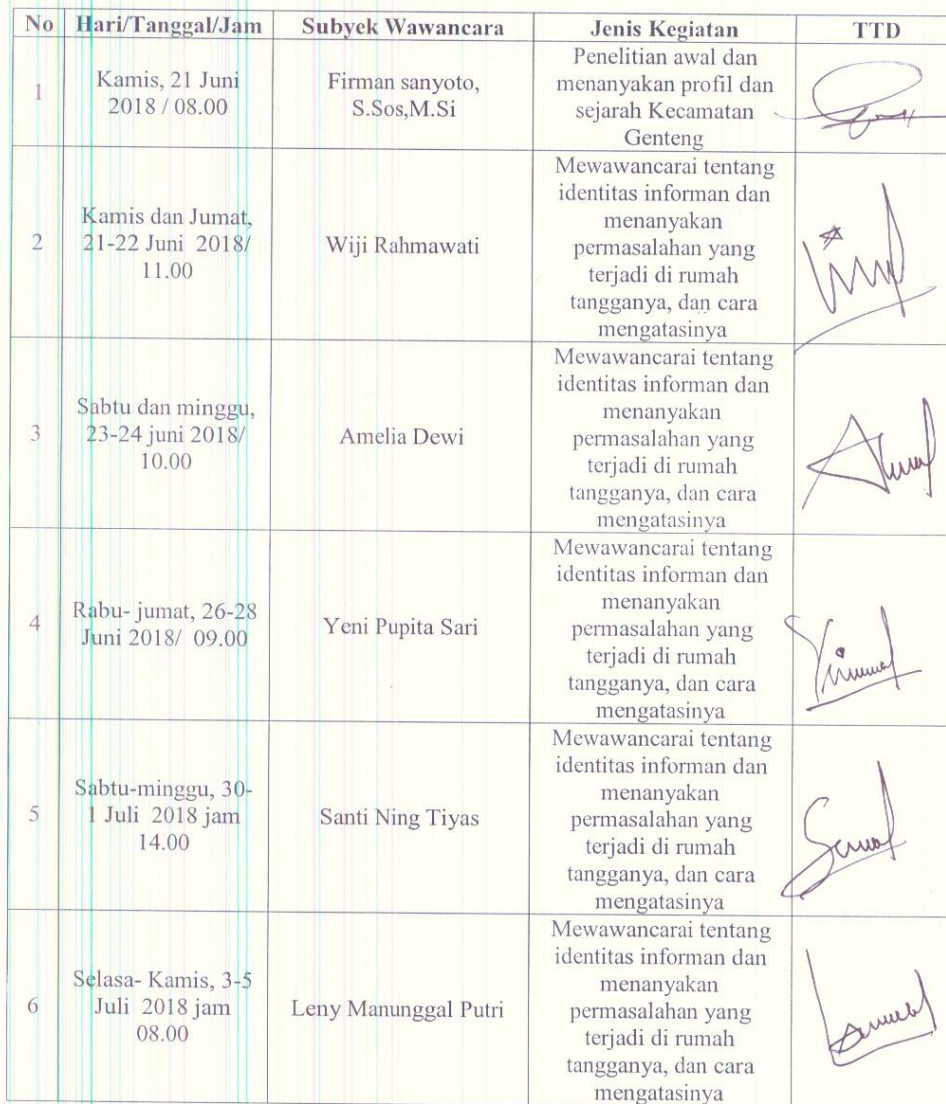 No Hari/Tanggal/Jam Subyek Wawancara Jenis Kegiatan TTD
1
Kamis, 21 Juni
2018 / 08.00
Firman sanyoto,
S.Sos,M.Si
Penelitian awal dan
menanyakan profil dan
sejarah Kecamatan
Genteng
2
Kamis dan Jumat,
21-22 Juni 2018/
11.00
Wiji Rahmawati
Mewawancarai tentang
identitas informan dan
menanyakan
permasalahan yang
terjadi di rumah
tangganya, dan cara
mengatasinya
3
Sabtu dan minggu,
23-24 juni 2018/
10.00
Amelia Dewi
Mewawancarai tentang
identitas informan dan
menanyakan
permasalahan yang
terjadi di rumah
tangganya, dan cara
mengatasinya
4
Rabu- jumat, 26-28
Juni 2018/ 09.00
Yeni Pupita Sari
Mewawancarai tentang
identitas informan dan
menanyakan
permasalahan yang
terjadi di rumah
tangganya, dan cara
mengatasinya
5
Sabtu-minggu, 30-
1 Juli 2018 jam
14.00
Santi Ning Tiyas
Mewawancarai tentang
identitas informan dan
menanyakan
permasalahan yang
terjadi di rumah
tangganya, dan cara
mengatasinya
6
Selasa- Kamis, 3-5
Juli 2018 jam
08.00
Leny Manunggal Putri
Mewawancarai tentang
identitas informan dan
menanyakan
permasalahan yang
terjadi di rumah
tangganya, dan cara
mengatasinya